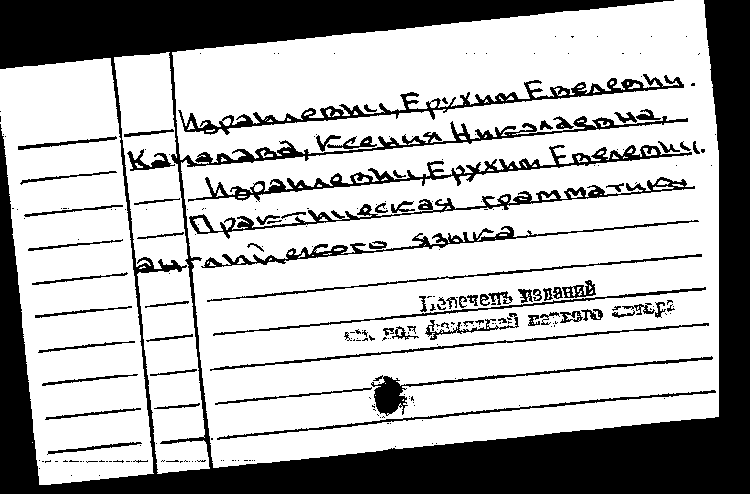 Израилевич, Ерухим Евелевич.
Качалова, Ксения Николаевна,
Израилевич, Ерухим Евелевич.
Практическая грамматика
английского языка.
Перечень изданий
см. под фамилией первого автора